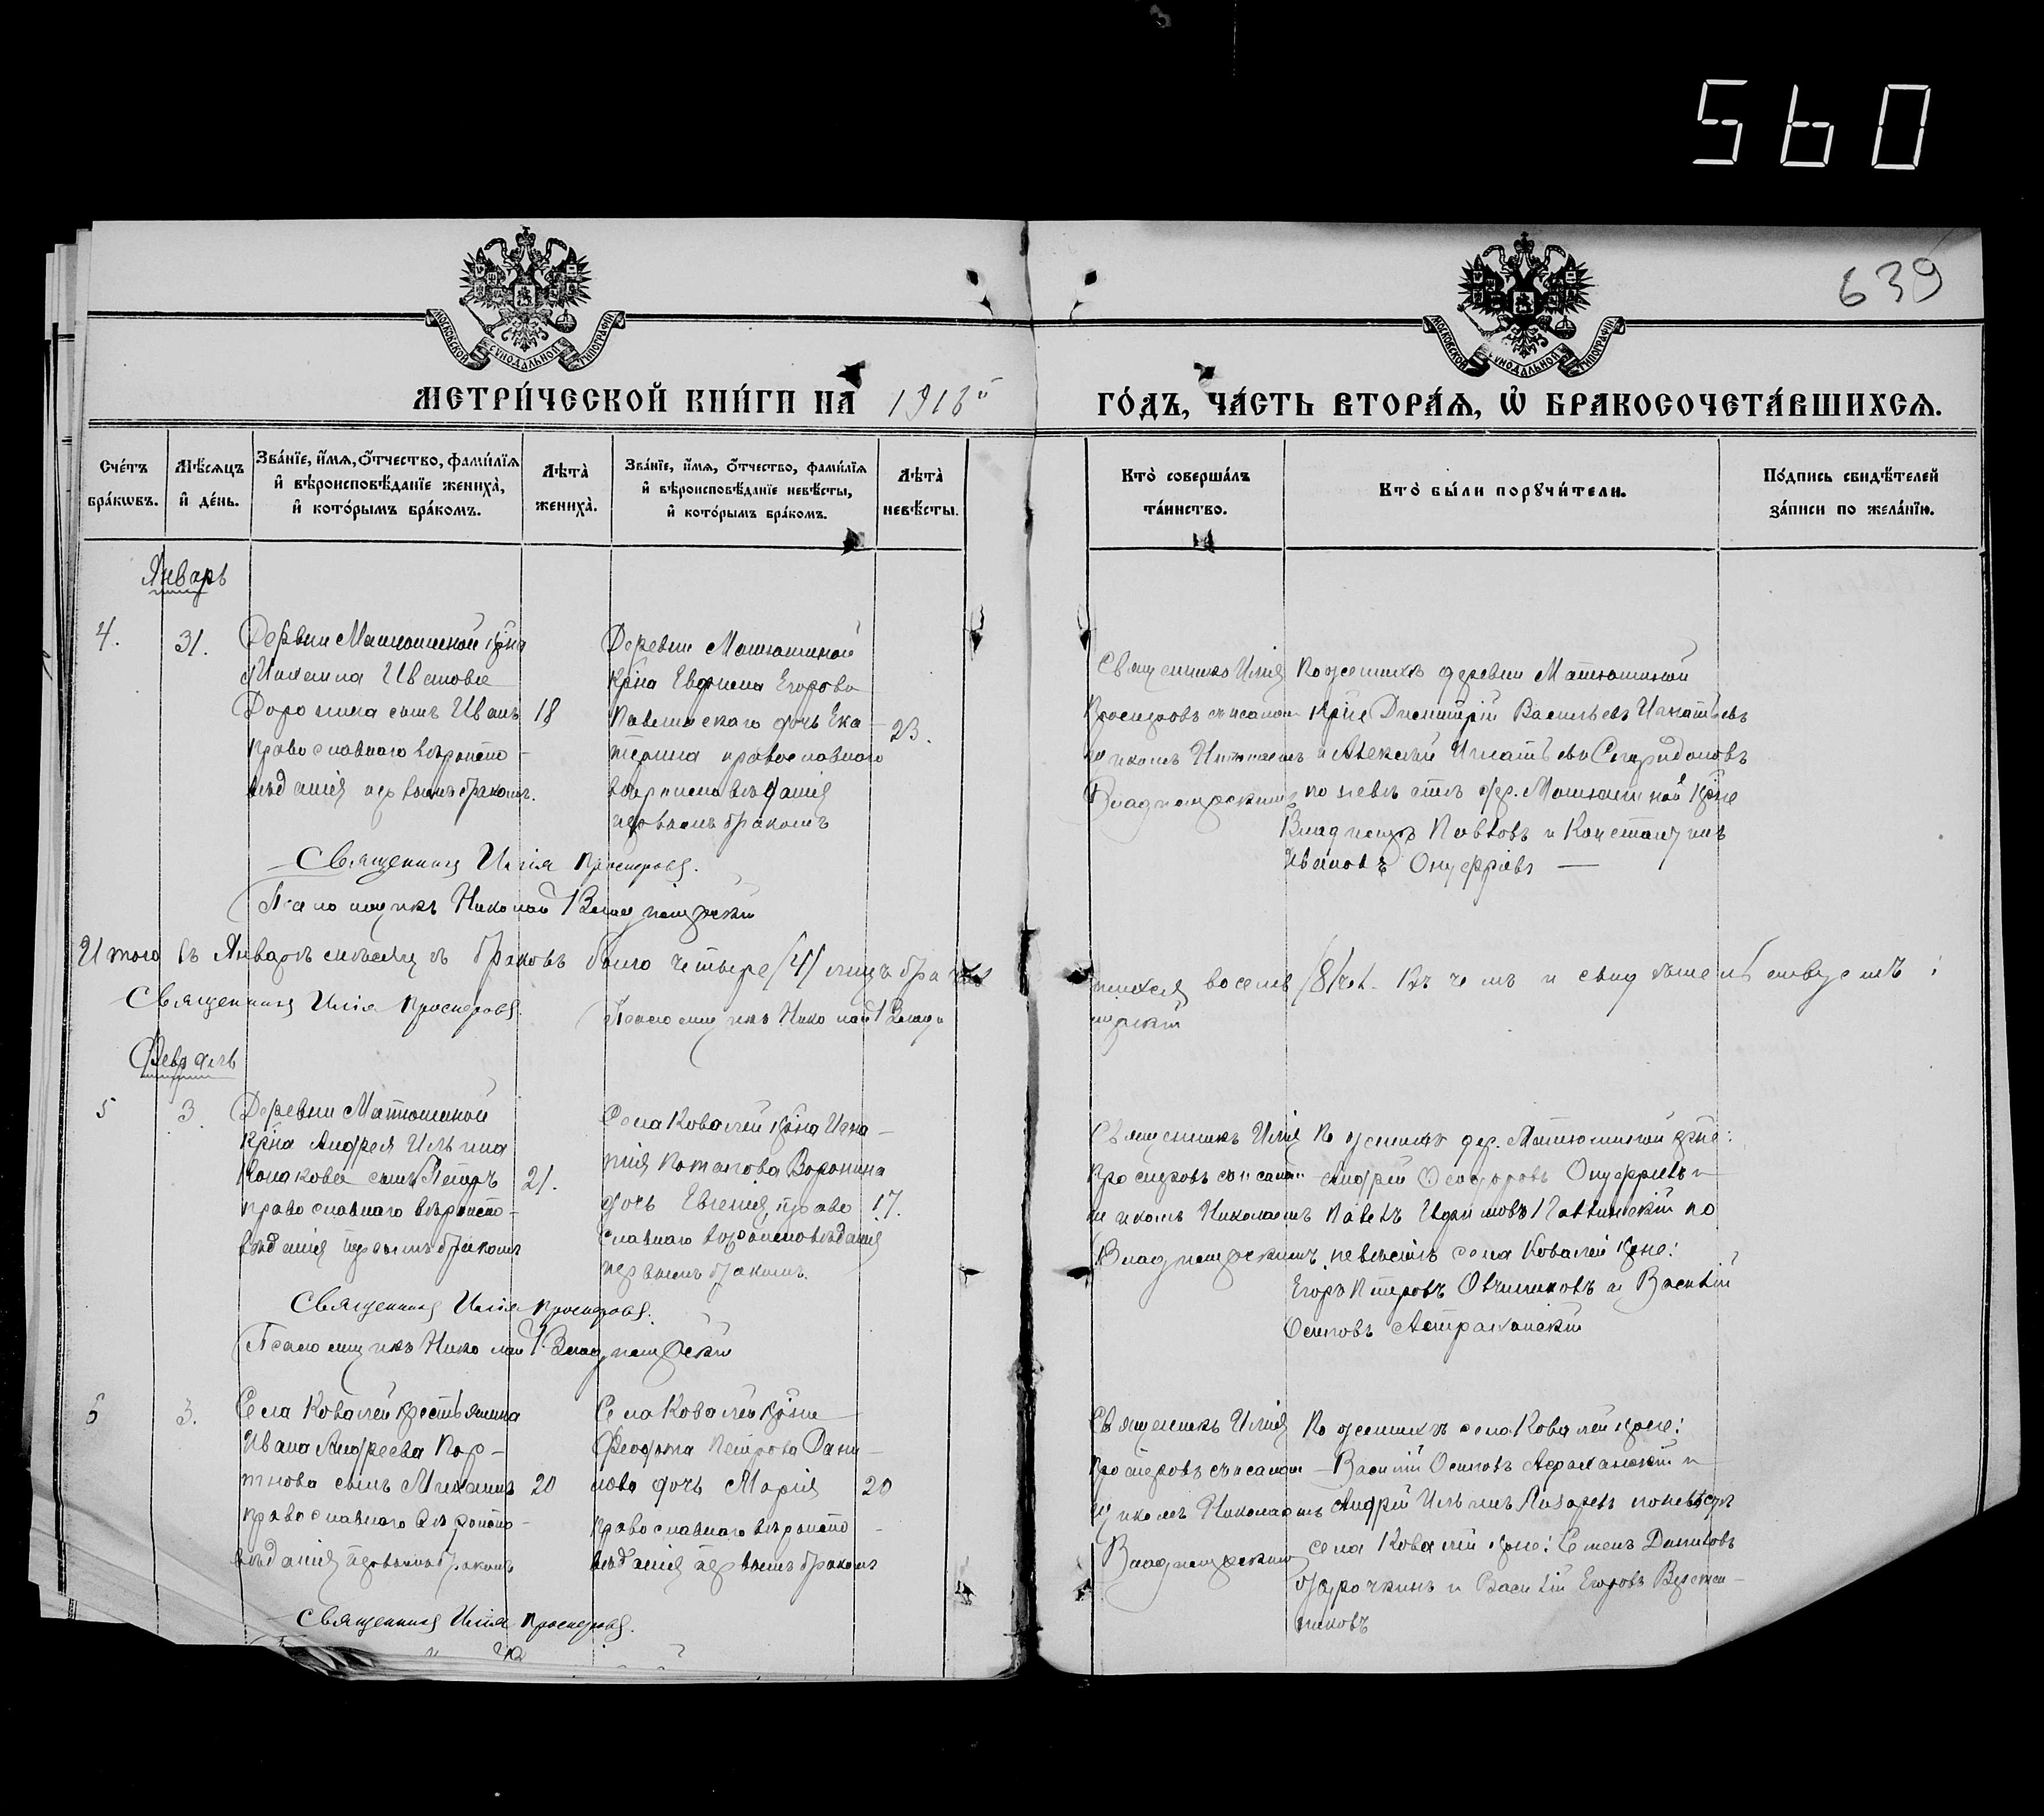 560
639
МОСКОВСКОЙ СѴНОДАЛЬНОЙ ТИПОГРАФІИ
МОСКОВСКОЙ СѴНОДАЛЬНОЙ ТИПОГРАФІИ
МЕТРИ́ЧЕСКОЙ КНИ́ГИ НА 1918й
ГО́ДЪ, ЧА́СТЬ ВТОРА́Ѧ, Ѽ БРАКОСОЧЕТА́ВШИХСѦ.
Счéтъ бра́кѡвъ.
Мѣ́сяцъ и҆ де́нь.
Зва́нїе, и҆́мѧ, ѻ҆́тчество, фами́лїѧ и҆ вѣроисповѣ́данїе жениха̀, и҆ кото́рымъ бра́комъ.
Лѣта̀ жениха̀.
Зва́нїе, и҆́мѧ, ѻ҆́тчество, фами́лїѧ и҆ вѣроисповѣ́данїе невѣ́сты, и҆ кото́рымъ бра́комъ.
Лѣта̀ невѣ́сты.
Кто̀ соверша́лъ та́инство.
Кто̀ бы́ли порꙋчи́тели.
По́дпись свидѣ́телей за́писи по жела́нїю.
Январь
4.
31.
Деревни Матюшиной крна
Иванова
Доронина сынъ Иванъ
православнаго вѣроиспо-
вѣданія первымъ бракомъ.
18
Деревни Матюшиной
крна Егорова
Павлинскаго дочь Ека-
терина православнаго
вѣроисповѣданія
первымъ бракомъ
23.
Священникъ Илія
Просперовъ съ псалом-
щикомъ Николаемъ
Владимірскимъ
По женихѣ деревни Матюшиной
крне Димитрій Васильевъ Игнатьевъ
и Алексѣй Игнатьевъ Спиридоновъ
по невѣстѣ дер. Матюшиной крне
Владиміръ Павловъ и Константинъ
Ивановъ Онуфріевъ —
Священникъ Илія Просперовъ.
Псаломщикъ Николай Владимірскій
Итого въ Январѣ мѣсяцѣ браковъ было четыре /4/ лицъ
восемь /8/ чел. въ чемъ и свидѣтельствуемъ:
Священникъ Илія Просперовъ.
Псаломщикъ Николай Влади
мірскій
Февраль
5
3.
Деревни Матюшиной
крна Андрея Ильина
сынъ Петръ
православнаго вѣроиспо-
вѣданія первымъ бракомъ
21.
Села Ковалей крна Игна-
тія Потапова Воронина
дочь Евгенія, право
славнаго вѣроисповѣданія
первымъ бракомъ.
17.
Священникъ Илія
Просперовъ съ псалом-
щикомъ Николаемъ
Владимірскимъ
По женихѣ дер. Матюшиной крне:
Андрей Ѳеодоровъ Онуфріевъ и
Павелъ Павлинскій по
невѣстѣ села Ковалей крне:
Егоръ Петровъ Овчинниковъ и Василій
Осиповъ Астраханскій
Священникъ Илія Просперовъ.
Псаломщикъ Николай Владимірскій
6
3.
Села Ковалей крестьянина
Ивана Андреева Пор-
тнова сынъ Михаилъ
православнаго вѣроиспо-
вѣданія первымъ бракомъ
20
Села Ковалей крне
Петрова Дани-
лова дочь Марія
православнаго вѣроиспо
вѣданія первымъ бракомъ
20
Священникъ Илія
Просперовъ съ псалом
щикомъ Николаемъ
Владимірскимъ
По женихѣ села Ковалей крне:
Василій Осиповъ и
Андрей Ильинъ Лазаревъ по невѣстѣ
села Ковалей крне: Семенъ Даниловъ
и Василій Егоровъ
никовъ
Священникъ Илія Просперовъ.